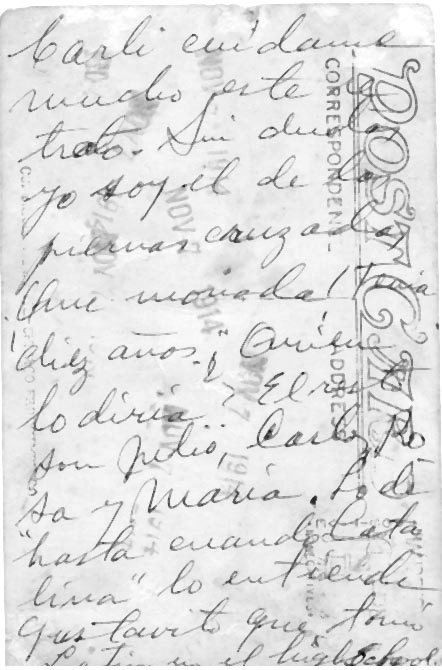 Carli cuídame
mucho este re
trato. Sin duda
yo soy el de las
piernas cruzadas
Que monada! Tenía
diez años. ¿Quien
lo diría? El resto
son Julio, Carlos, Ro
sa y María. Lo de
"hasta cuando Cata
lina" lo entiende
Gustavito que tomó
Latin en el high School
POST CARD
CORRESPONDENCE
ADDRESS
NOV 7 1914